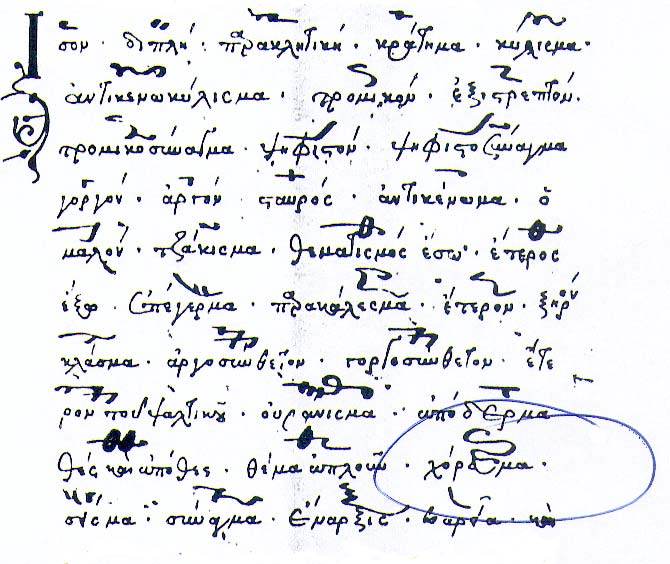 Ἶσον · διπλῆ · παρακλητική · κράτημα · κύλισμα ·
ἀντικενωκύλισμα · τρομικόν · ἐξστρεπτόν ·
τρομικοσύναγμα · ψηφιστόν · ψηφιστοσύναγμα
γοργόν · ἀργόν · σταυρός · ἀντικένωμα · ὁ
μαλόν · τζάκισμα · θεματισμός ἔσω · ἕτερος
ἔξω · ἐπέγερμα · παρακάλεσμα · ἕτερον · ξηρόν
κλάσμα · ἀργοσύνθετον · γοργοσύνθετον · ἕτε
ρον τοῦ ψαλτικοῦ · οὐράνισμα · ὑπόδερμα
θές καὶ ἀπόθες · θέμα ἁπλοῦν · χόρευμα ·
σύναγμα · ἔναρξις · βαρεῖα · καὶ